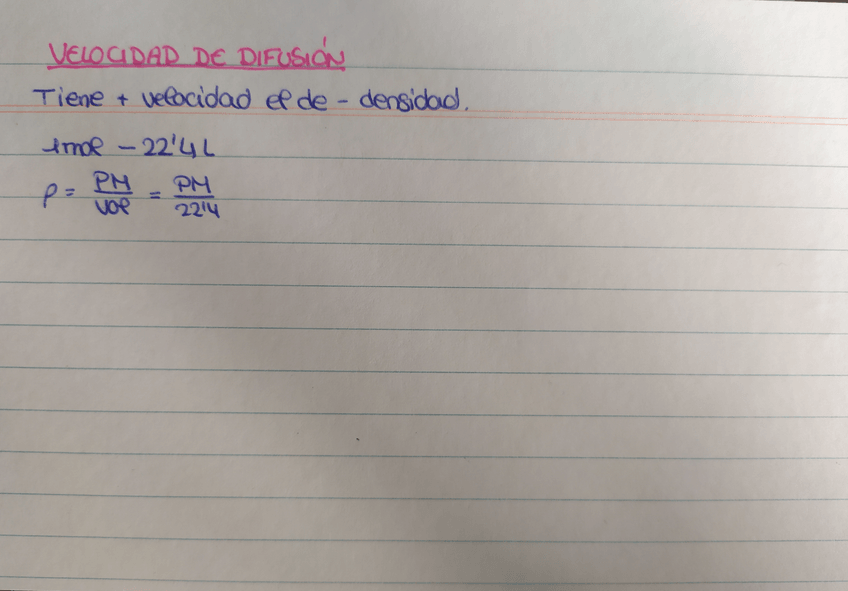 VELOCIDAD DE DIFUSIÓN
Tiene + velocidad el de - densidad.
1mol - 22'4 L
ρ = PM/vol = PM/22'4